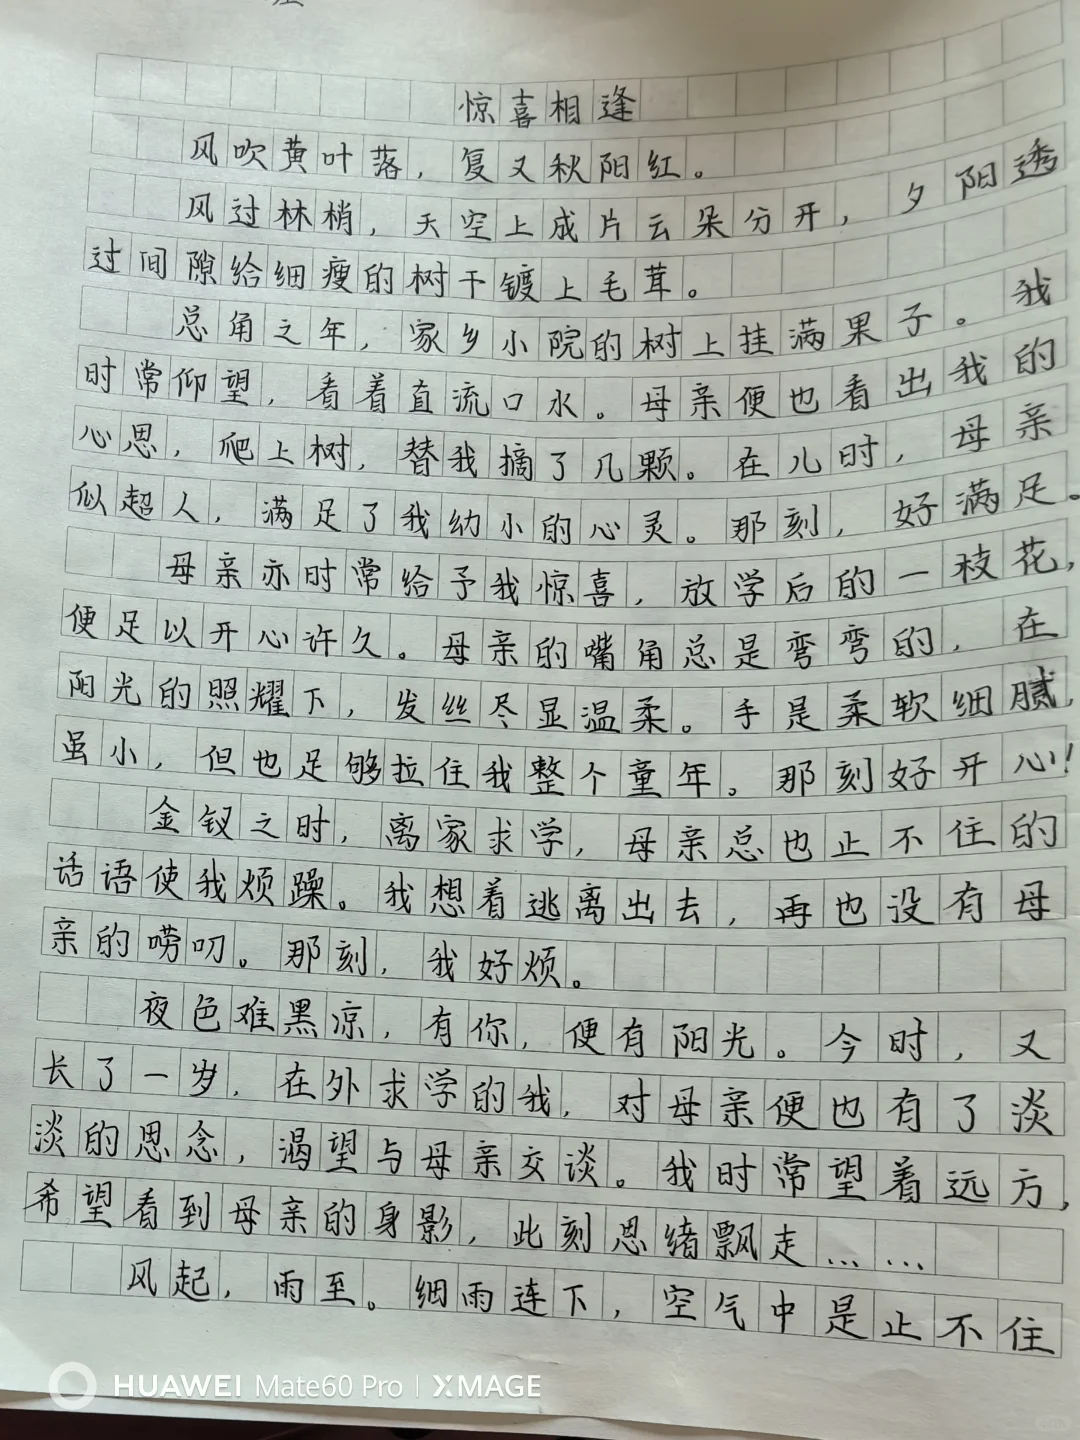 惊喜相逢
风吹黄叶落，复又秋阳红。
风过林梢，天空上成片云朵分开，夕阳透
过间隙给细瘦的树干镀上毛茸。
总角之年，家乡小院的树上挂满果子。我
时常仰望，看着直流口水。母亲便也看出我的
心思，爬上树，替我摘了几颗。在儿时，母亲
似超人，满足了我幼小的心灵。那刻，好满足。
母亲亦时常给予我惊喜，放学后的一枝花，
便足以开心许久。母亲的嘴角总是弯弯的，在
阳光的照耀下，发丝尽显温柔。手是柔软细腻，
虽小，但也足够拉住我整个童年。那刻好开心！
金钗之时，离家求学，母亲总也止不住的
话语使我烦躁。我想着逃离出去，再也没有母
亲的唠叨。那刻，我好烦。
夜色难黑凉，有你，便有阳光。今时，又
长了一岁，在外求学的我，对母亲便也有了淡
淡的思念，渴望与母亲交谈。我时常望着远方，
希望看到母亲的身影，此刻思绪飘走……
风起，雨至。细雨连下，空气中是止不住
HUAWEI Mate60 Pro | XMAGE